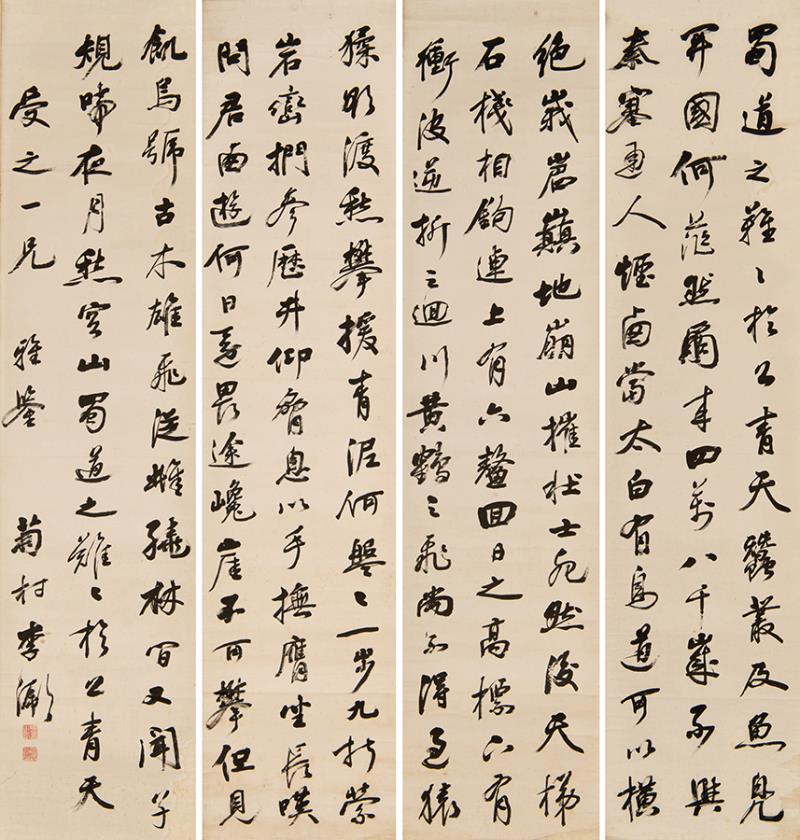 蜀道之難〻於上青天蠶叢及魚鳧
開國何茫然爾来四萬八千歲不與
秦塞通人煙西當太白有鳥道可以橫
絕峨眉巔地崩山摧壯士死然後天梯
石棧相鉤連上有六鰲回日之高標下有
衝波逆折之迴川黃鶴之飛尚不得過猿
猱欲渡愁攀援青泥何盤〻一步九折縈
岩巒捫參歷井仰脅息以手撫膺坐長嘆
問君西遊何日還畏途巉崖不可攀但見
飢烏號古木雄飛從雌繞林間又聞子
規啼夜月愁空山蜀道之難〻於上青天
受之一兄 雅鑒 菊村李